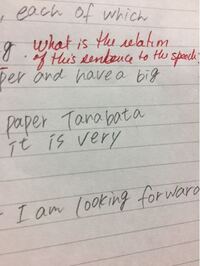 , each of which
g. What is the relation
of this sentence to the speech
per and have a big
paper Tanabata
it is very
I am looking forward